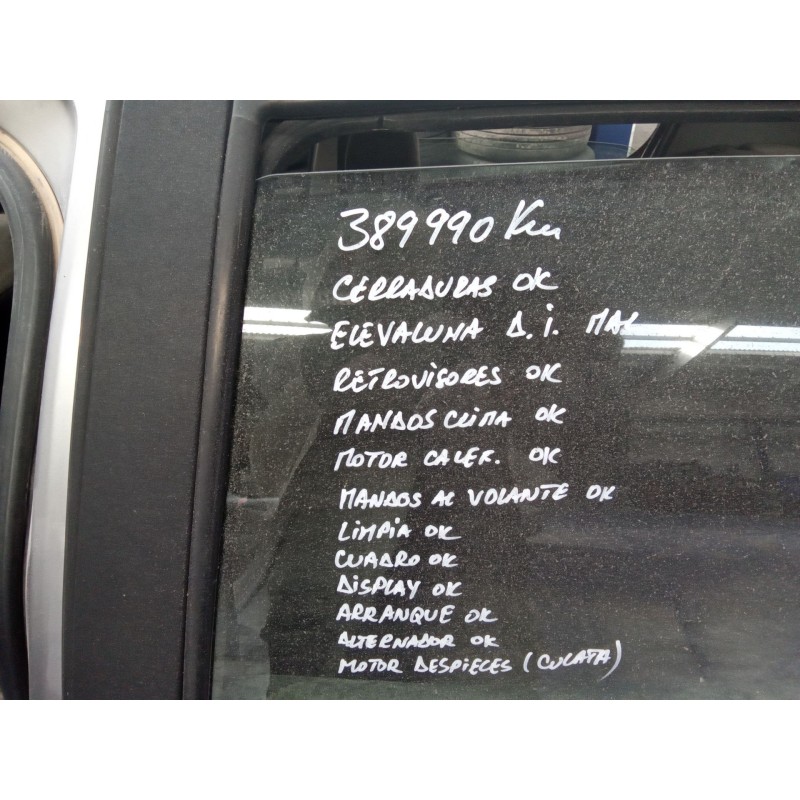 389990 Km
CERRADURAS OK
ELEVALUNA D.I. MAL
RETROVISORES OK
MANDOS CLIMA OK
MOTOR CALEF. OK
MANDOS AL VOLANTE OK
LIMPIA OK
CUADRO OK
DISPLAY OK
ARRANQUE OK
ALTERNADOR OK
MOTOR DESPIECES (CULATA)